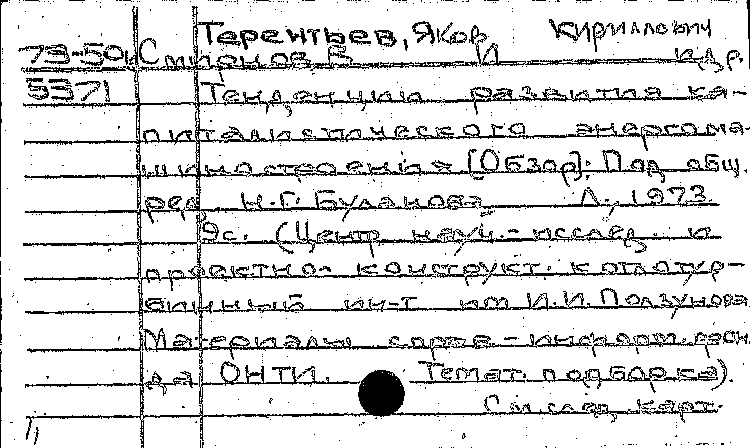 Терентьев, Яков Кириллович
73-50 Смирнов В И и др.
5371 Тенденции развития ка-
питалистического энергома-
шиностроения [Обзор]: Под общ.
ред. Н.Г. Буланова Л., 1973.
9с. (Центр науч.-исслед. и
проектно-конструкт. котлотур-
бинный ин-т им И.И. Ползунова
Материалы справ-информ. фон-
да ОНТИ. Темат. подборка).
См. след. карт.